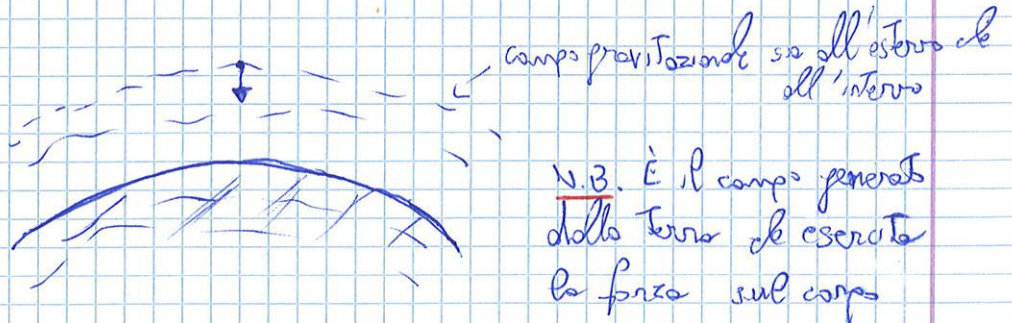 campo gravitazionale sia all'esterno che
all'interno
N.B. È il campo generato
dalla Terra che esercita
la forza sul corpo